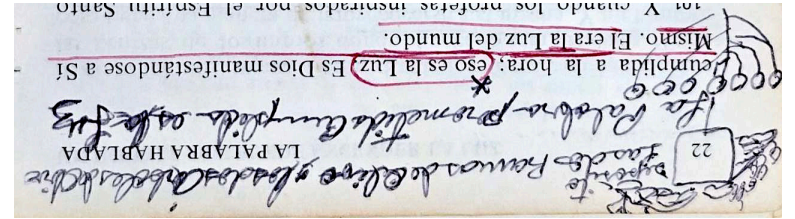 Ramos de olivo y los dos Arboles de olivo
22 LA PALABRA HABLADA
La Palabra prometida Cumplida es la Luz
cumplida a la hora; eso es la Luz Es Dios manifestándose a Sí
Mismo. El era la Luz del mundo.
Y cuando los profetas inspirados por el Espíritu Santo